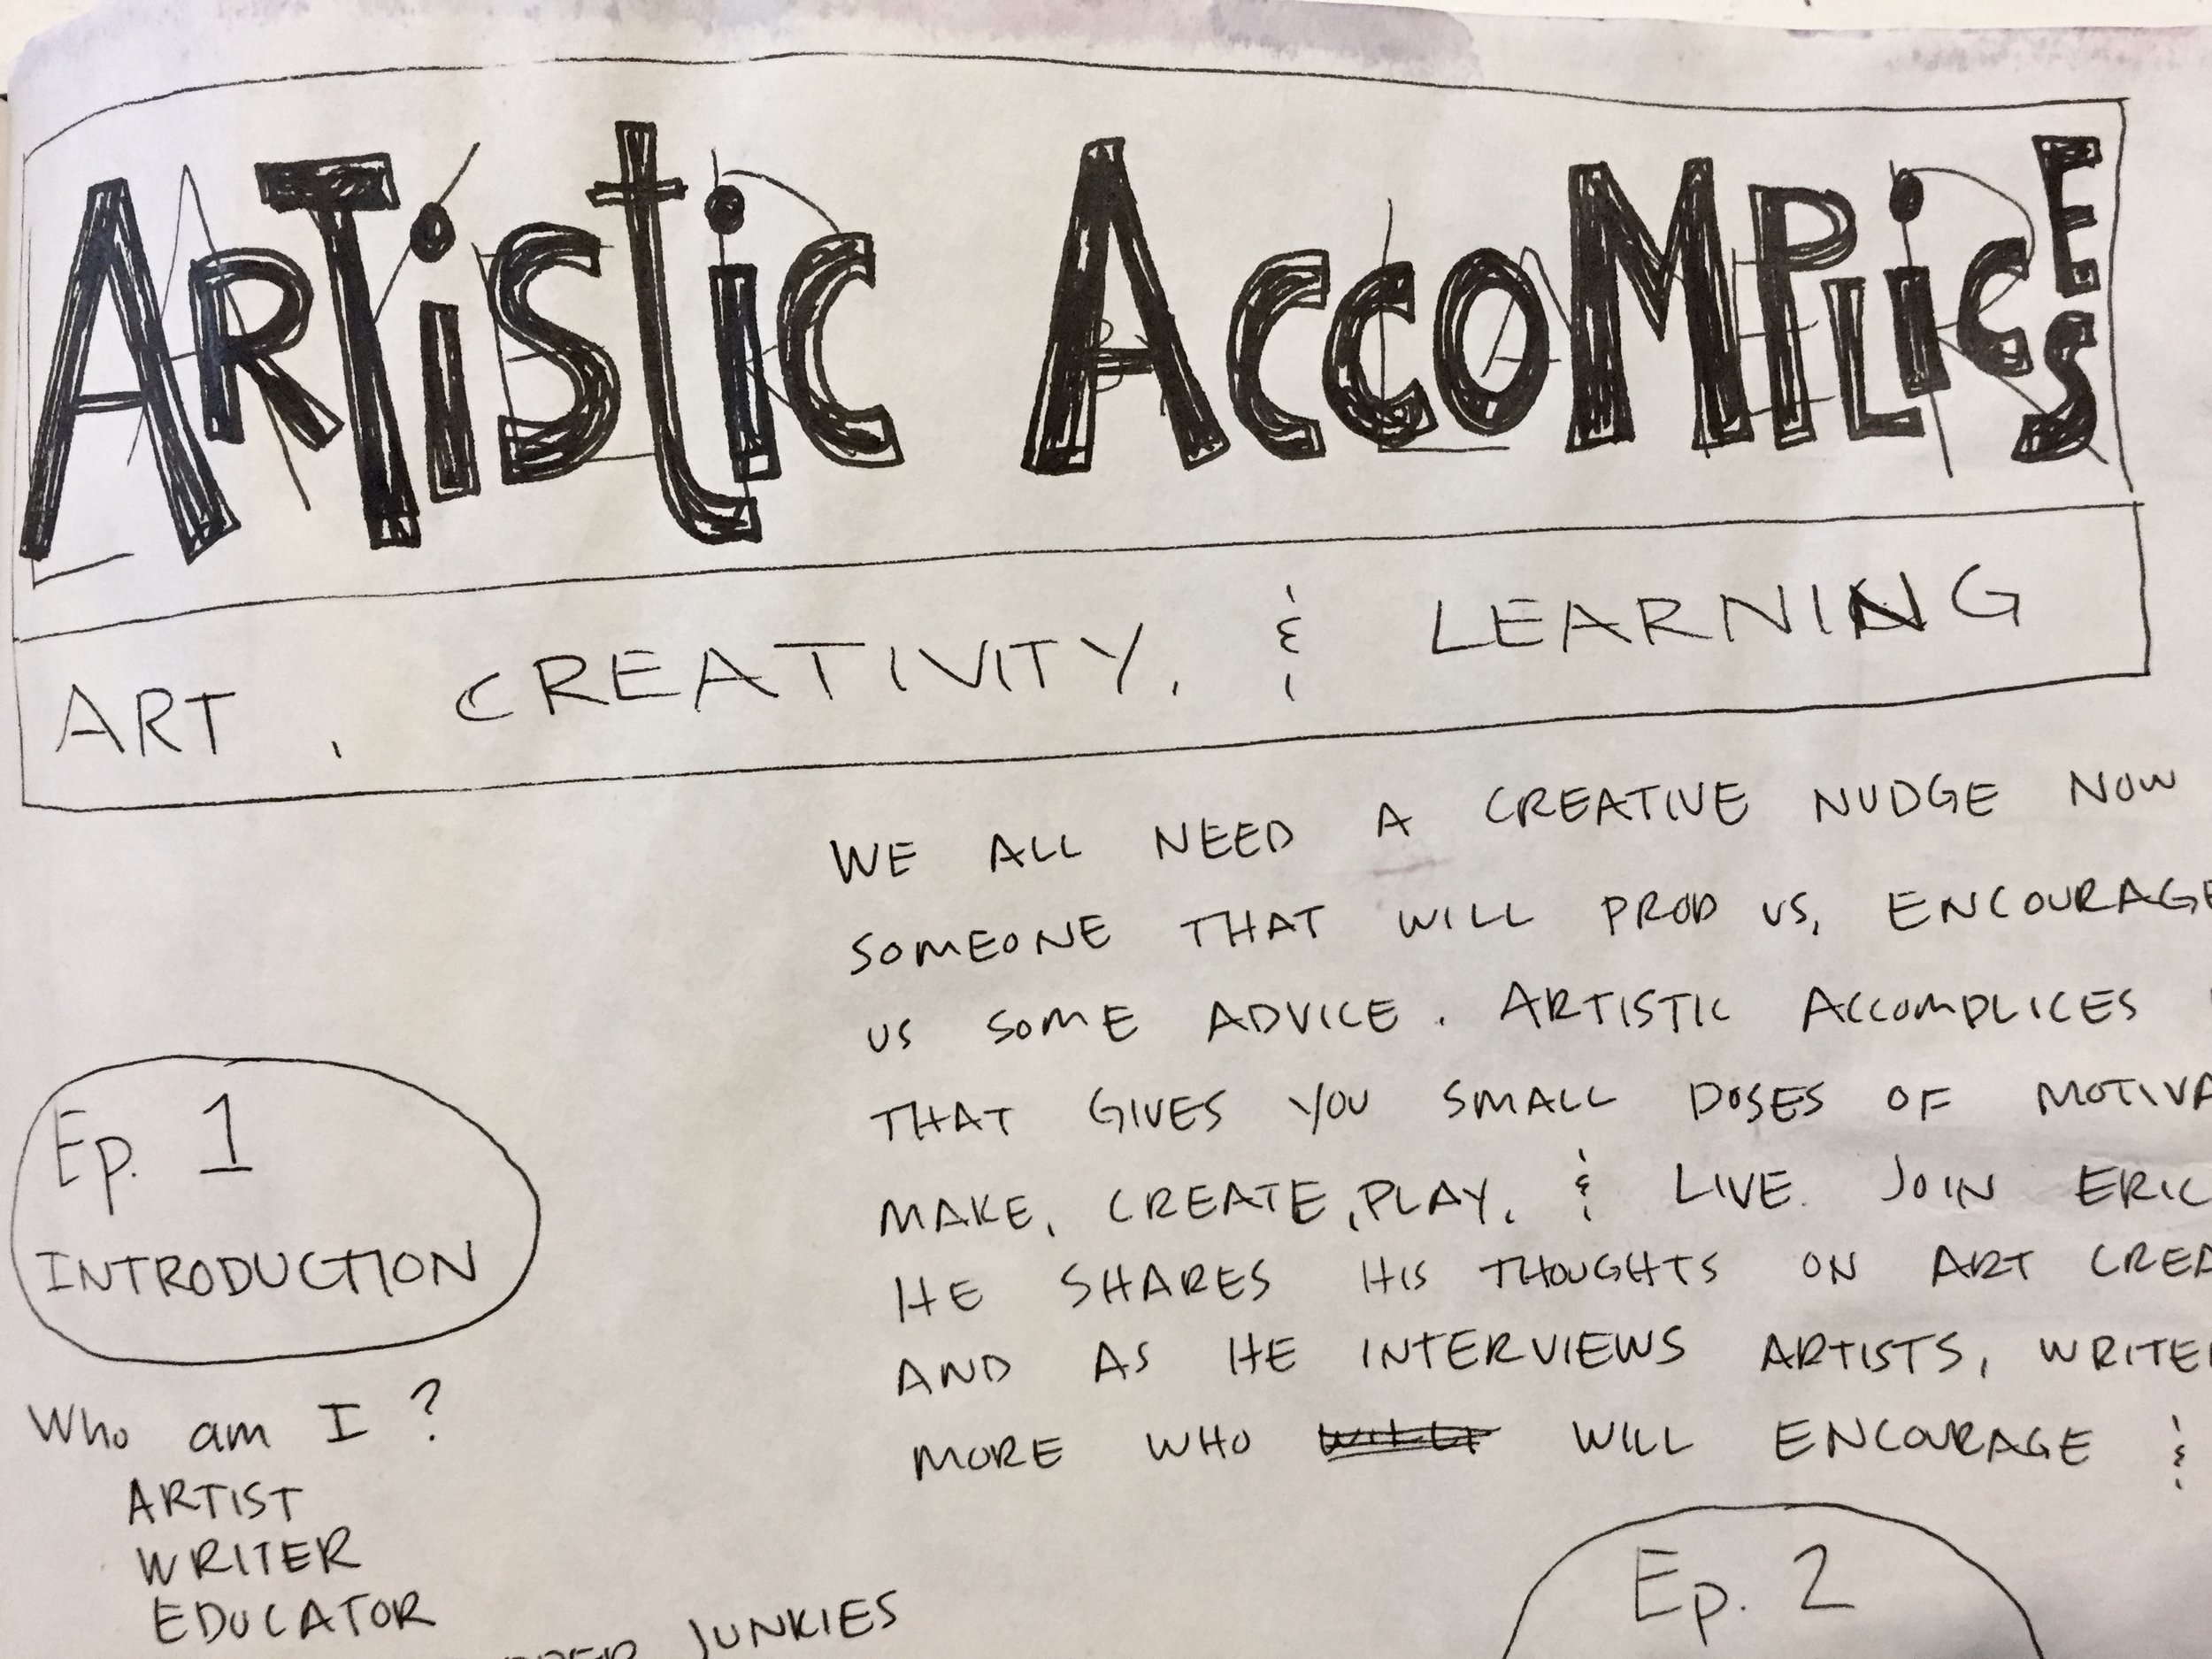 ARTiStiC ACCOMPLiCES
ART, CREATIVITY, & LEARNING
WE ALL NEED A CREATIVE NUDGE NOW
SOMEONE THAT WILL PROD US, ENCOURAGE
US SOME ADVICE. ARTISTIC ACCOMPLICES
THAT GIVES YOU SMALL DOSES OF MOTIVA
MAKE, CREATE, PLAY, & LIVE. JOIN ERIC
HE SHARES HIS THOUGHTS ON ART CREA
AND AS HE INTERVIEWS ARTISTS, WRITE
MORE WHO WILL ENCOURAGE &
Ep. 1
INTRODUCTION
Who am I?
ARTIST
WRITER
EDUCATOR
JUNKIES
Ep. 2